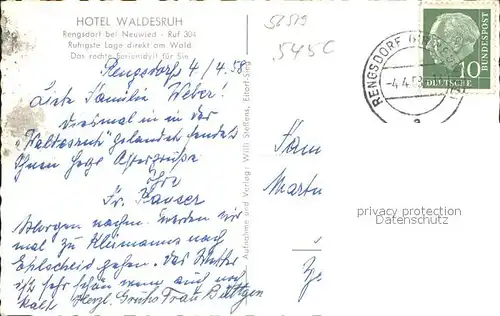 HOTEL WALDESRUH
Rengsdorf bei Neuwied - Ruf 304
Ruhigste Lage direkt am Wald
Das rechte Ferienidyll für Sie
52519
545C
Rengsdorf 4/4.58
Liebe Familie Weber!
Diesmal in der
"Waldesruh" gelandet sendet
Ihnen Ostergrüße
Ihre
Fr. Kauser
Morgen werden wir
mal zu nach
Ehlscheid gehen. Das
ist sehr schön wenn auch noch
kalt. Herzl. Grüße Frau Büttgen
Aufnahme und Verlag: Willi Steffens, Eitorf-Sieg
Fam
RENGSDORF
-4.4.58
a
10
DEUTSCHE
BUNDESPOST
privacy protection
Datenschutz